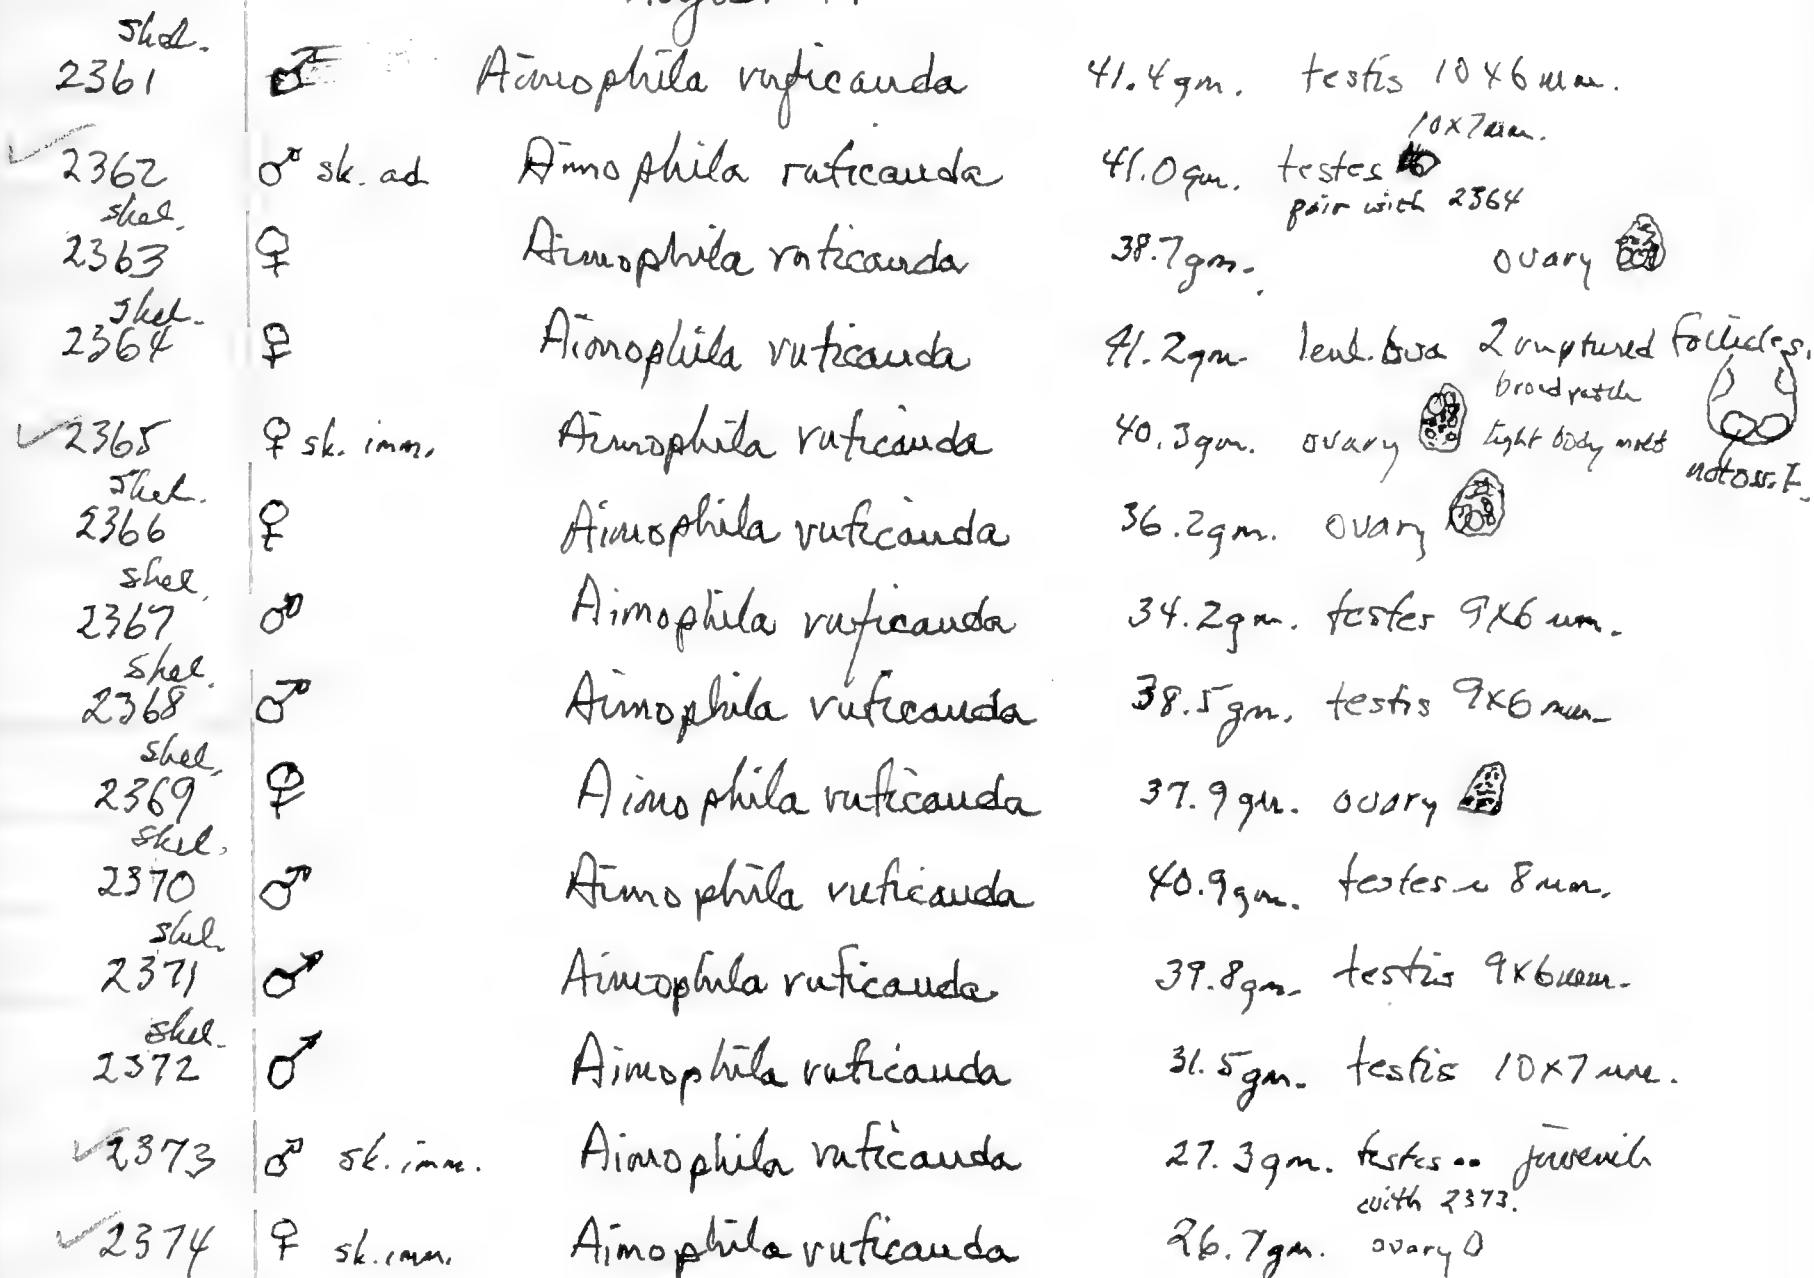 August
skel.
2361 ♂ Aimophila ruficauda 41.4 gm. testis 10 x 6 mm.
10 x 7 mm.
2362 ♂ sk. ad. Aimophila ruficauda 41.0 gm. testes
pair with 2364
skel.
2363 ♀ Aimophila ruficauda 38.7 gm. ovary
skel.
2364 ♀ Aimophila ruficauda 41.2 gm. ova 2 ruptured follicles.
brood patch
2365 ♀ sk. imm. Aimophila ruficauda 40.3 gm. ovary light body molt
not oss.
skel.
2366 ♀ Aimophila ruficauda 36.2 gm. ovary
skel.
2367 ♂ Aimophila ruficauda 34.2 gm. testes 9x6 mm.
skel.
2368 ♂ Aimophila ruficauda 38.5 gm. testis 9x6 mm.
skel.
2369 ♀ Aimophila ruficauda 37.9 gm. ovary
skel.
2370 ♂ Aimophila ruficauda 40.9 gm. testes ~ 8 mm.
skel.
2371 ♂ Aimophila ruficauda 39.8 gm. testis 9x6 mm.
skel.
2372 ♂ Aimophila ruficauda 31.5 gm. testis 10x7 mm.
2373 ♂ sk. imm. Aimophila ruficauda 27.3 gm. testes juvenile
with 2373.
2374 ♀ sk. imm. Aimophila ruficauda 26.7 gm. ovary